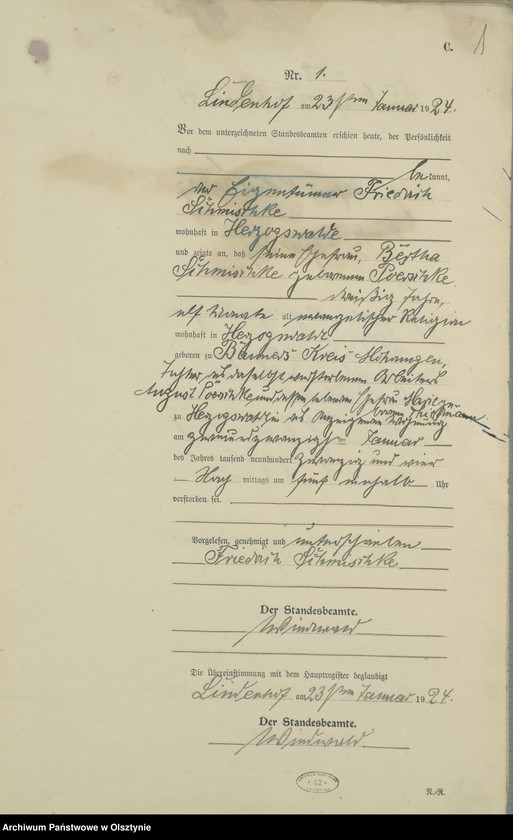 C.
1
Nr. 1.
Lindenhof am 23ten Januar 1924.
Vor dem unterzeichneten Standesbeamten erschien heute, der Persönlichkeit
nach
bekannt,
der Eigentümer Friedrich
Schmischke
wohnhaft in Herzogswalde
und zeigte an, daß seine Ehefrau, Bertha
Schmischke geborenen Poerschke,
dreißig Jahre,
elf Monate alt evangelischer Religion
wohnhaft in Herzogswalde
geboren zu Kreis Mohrungen,
Tochter des daselbst verstorbenen Arbeiters
August Poerschke und dessen Ehefrau
zu Herzogswalde in des Anzeigenden Wohnung
am zwanzigsten Januar
des Jahres tausend neunhundert zwanzig und vier
Nach mittags um fünf einhalb Uhr
verstorben sei.
Vorgelesen, genehmigt und unterschrieben
Friedrich Schmischke
Der Standesbeamte.
Windwald
Die Übereinstimmung mit dem Hauptregister beglaubigt
Lindenhof am 23ten Januar 1924.
Der Standesbeamte.
Windwald
42
N./R.
Archiwum Państwowe w Olsztynie